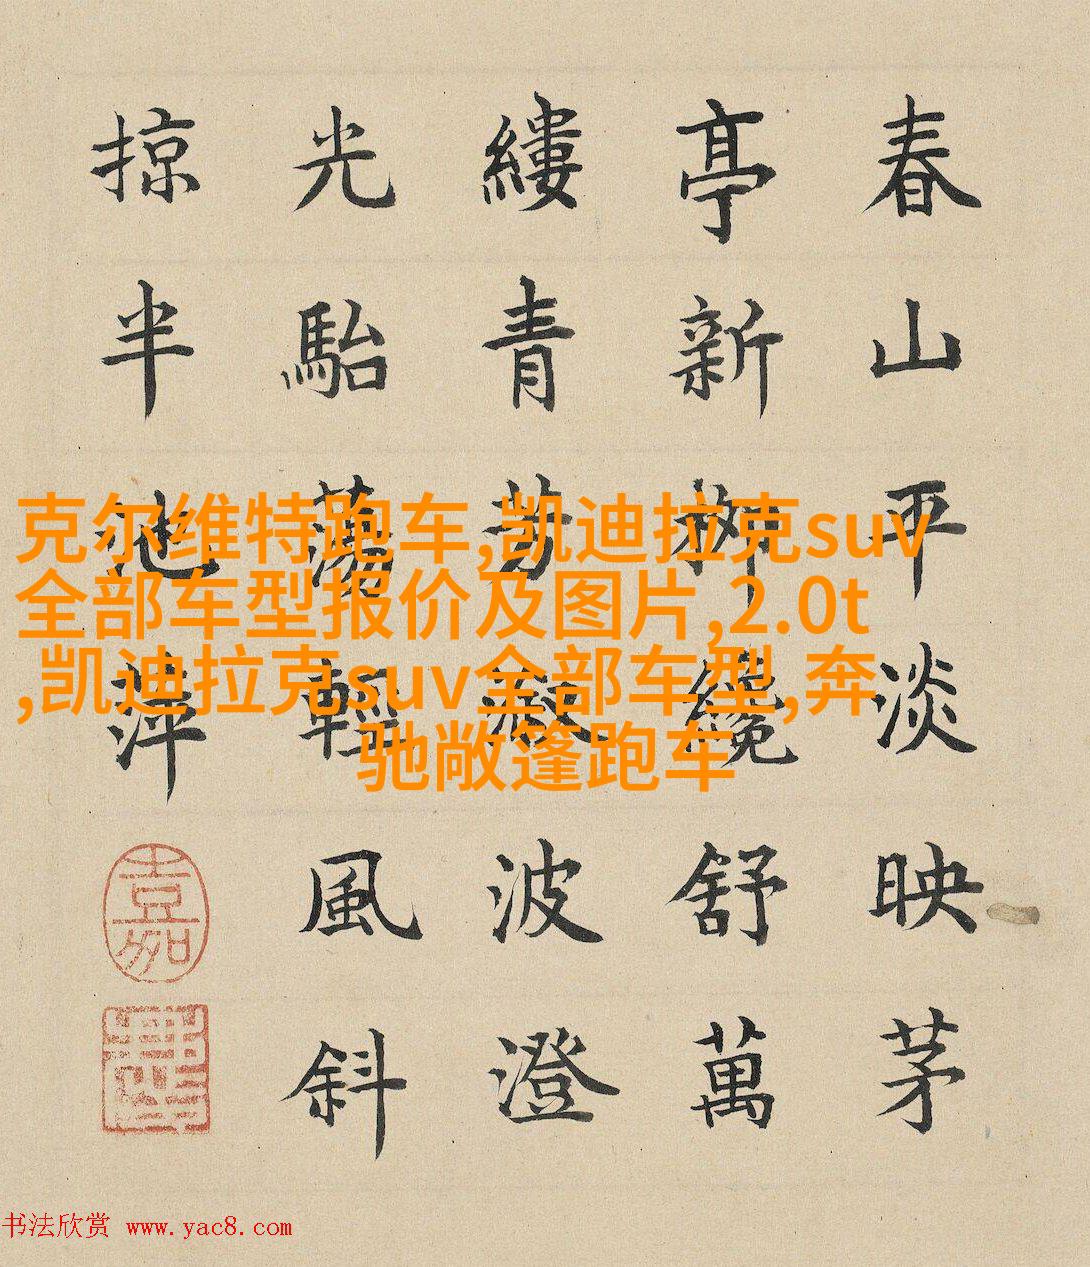 春山平淡映茅
亭新柳纔舒萬
縷青芳波澄
光駘蕩輕風斜
掠半池萍
嘉
克尔维特跑车,凯迪拉克suv
全部车型报价及图片,2.0t
,凯迪拉克suv全部车型,奔
驰敞篷跑车
书法欣赏 www.yac8.com